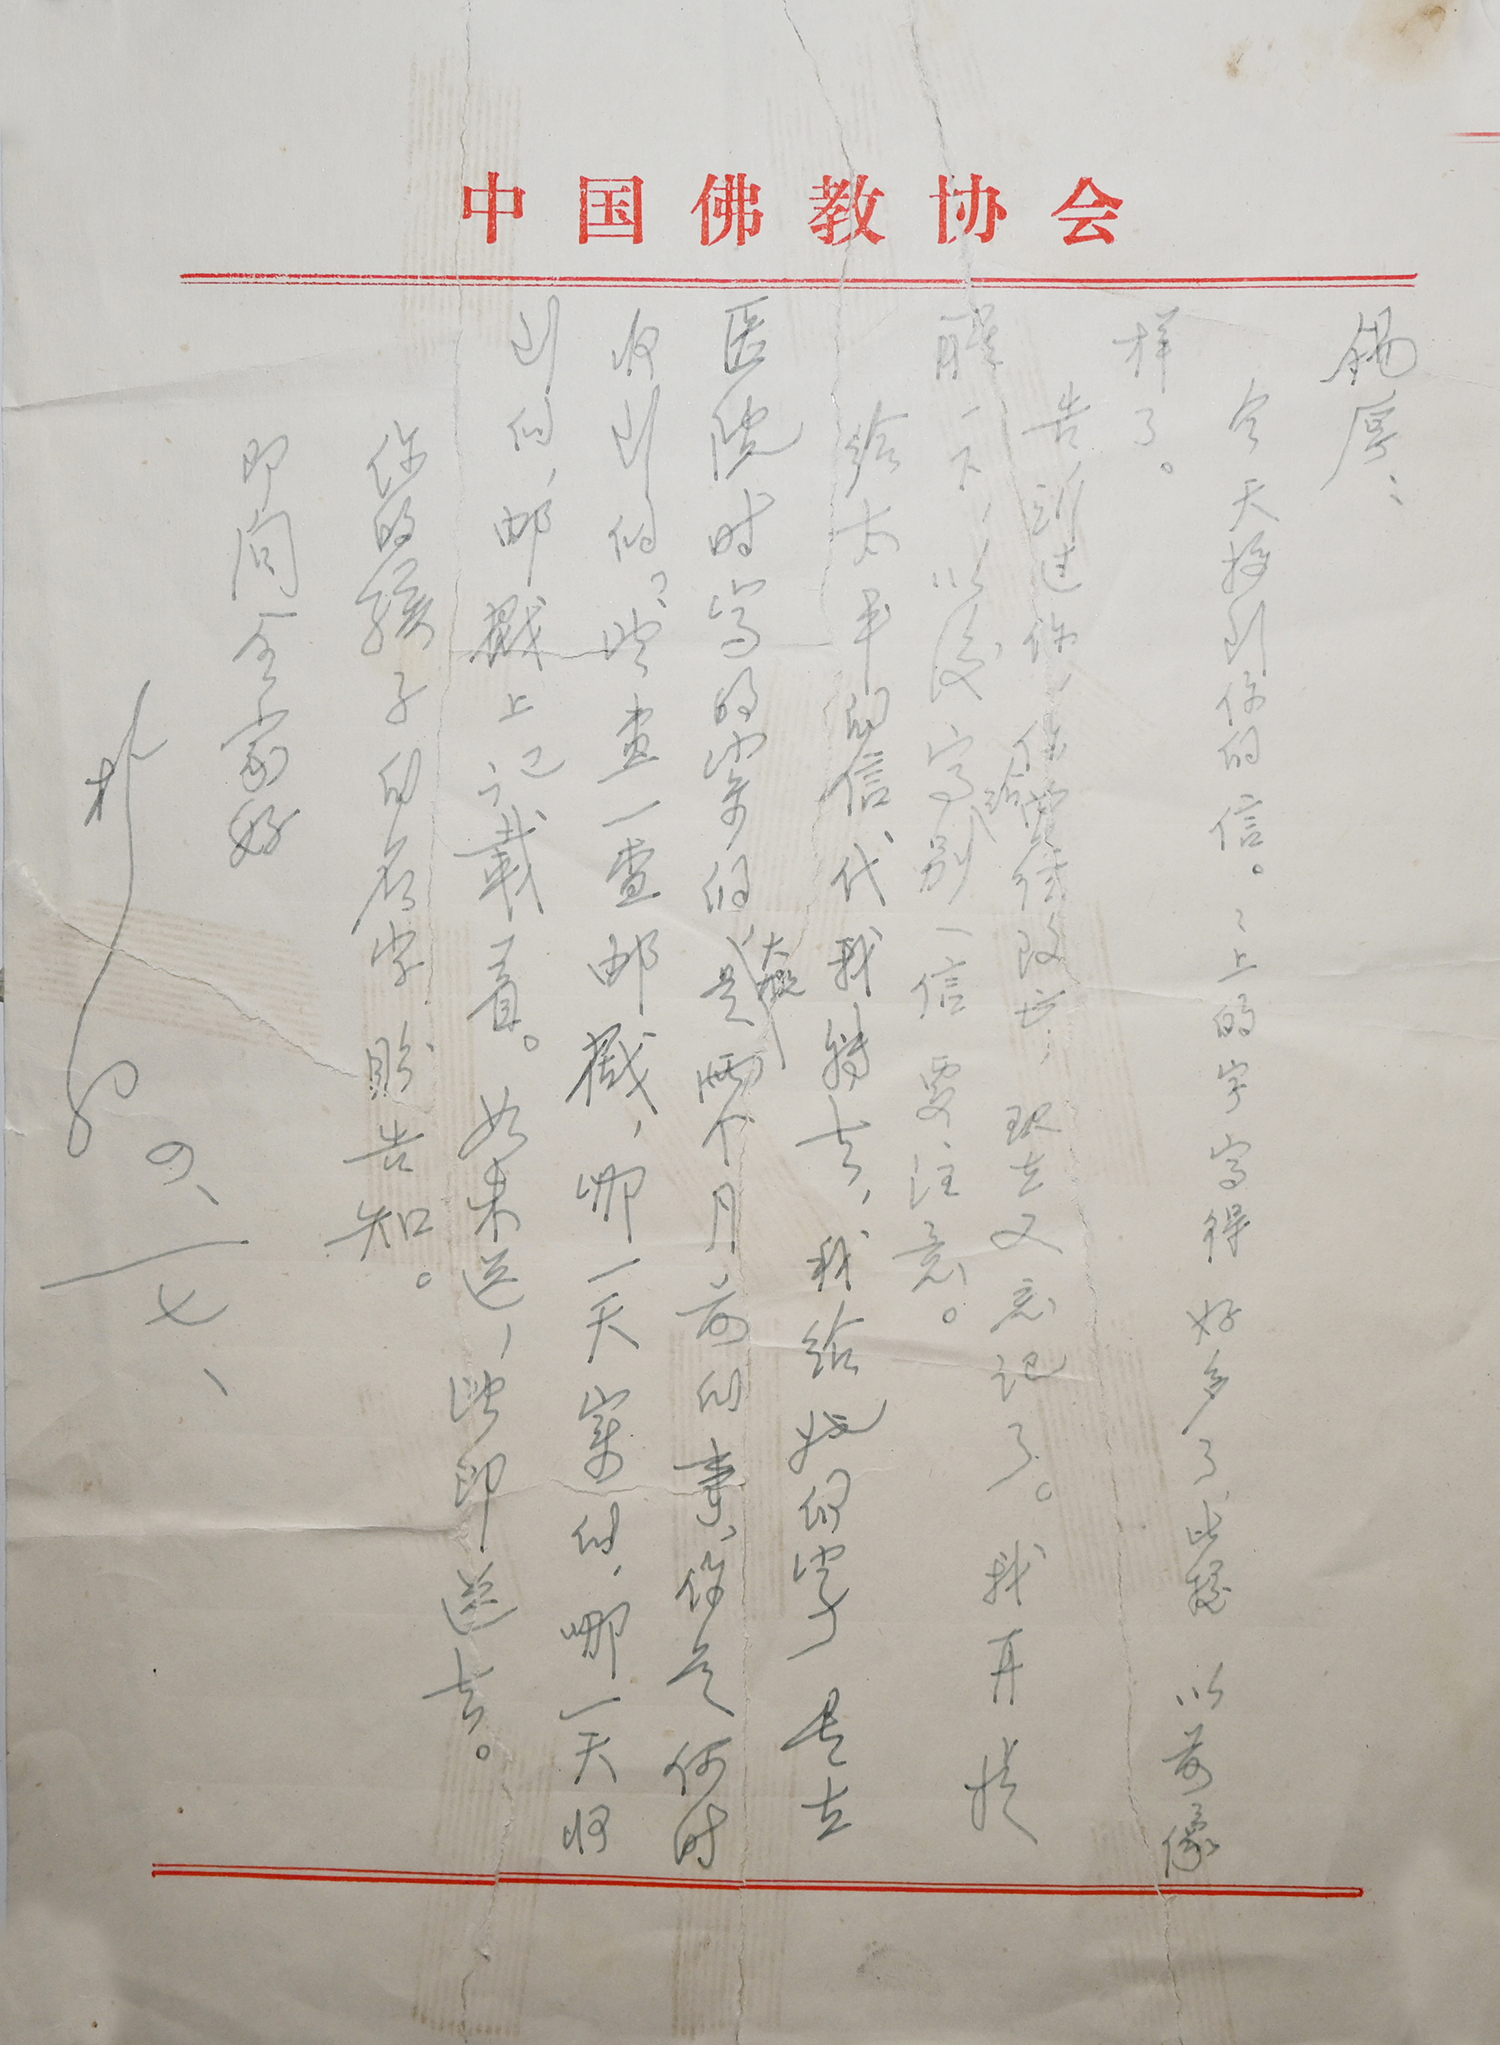 中国佛教协会
锡厚：
今天接到你的信。信上的字写得好多了，比 以前像
样了。
告诉过你，你给 信 ，现在又忘记了。我再提
醒一下，以后写别 信要注意。
给 的信代我 去，我给她的字 是在
医院时写的 寄的，大概是两个月前的事，你是何时
收到的？望查一查邮戳，哪一天寄的，哪一天收
到的，邮戳上记载着。如未送，望即送去。
你的孩子的名字盼告知。
即问全家好
朴初
四、一七、